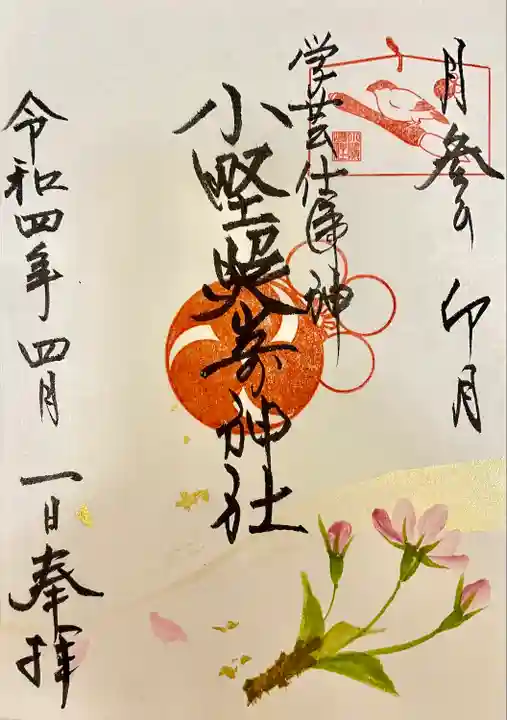 月参り 卯月
学芸仕事神
小野照崎神社
令和四年 四月 一日 奉拝